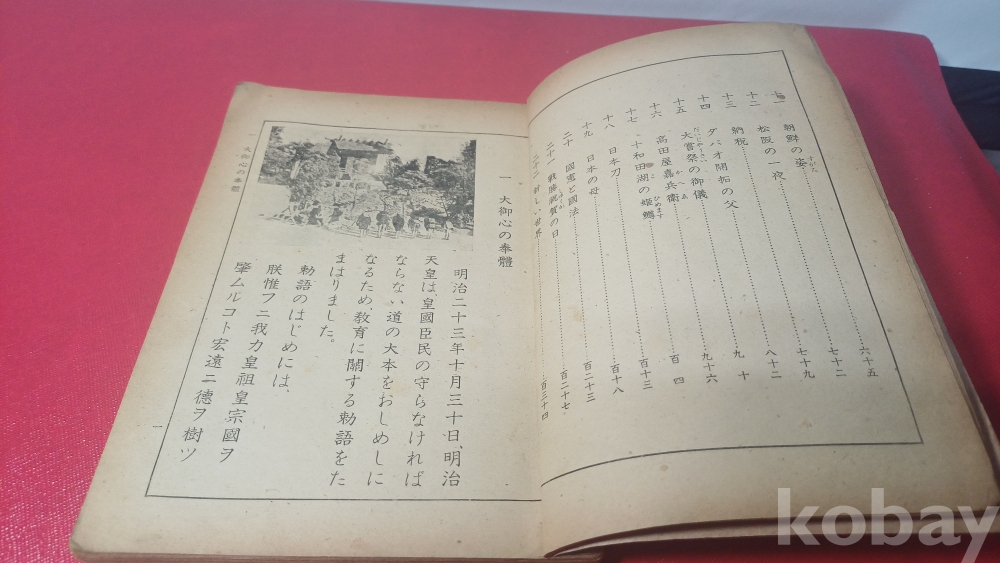 十一 朝鮮の姿 六十五
十二 松阪の一夜 七十二
十三 納税 七十九
十四 ダバオ開拓の父 八十二
十五 大嘗祭の御儀 九十
十六 高田屋嘉兵衛 九十六
十七 十和田湖の姫鱒 百四
十八 日本刀 百十三
十九 日本の母 百十八
二十 國憲と國法 百二十三
二十一 戰勝祝賀の日 百二十七
二十二 新しい世界 百三十四
一 大御心の奉體
明治二十三年十月三十日、明治
天皇は、皇國臣民の守らなければ
ならない道の大本をおしめしに
なるため、敎育に關する勅語をた
まはりました。
勅語のはじめには、
朕惟フニ我カ皇祖皇宗國ヲ
肇ムルコト宏遠ニ德ヲ樹ツ
一 大御心の奉體
一
kobay